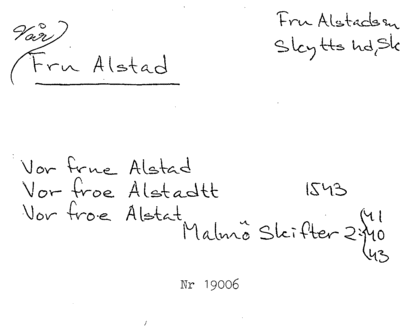 Vår)
Fru Alstad
Fru Alstads sn
Skytts hd, Sk
Vor frue Alstad
Vor froe Alstadtt 1543
Vor froe Alstat
Malmö Skifter 2: 41
40
43
Nr 19006